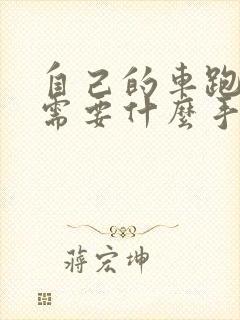 自己的車跑
需要什麼手
蔣宏坤